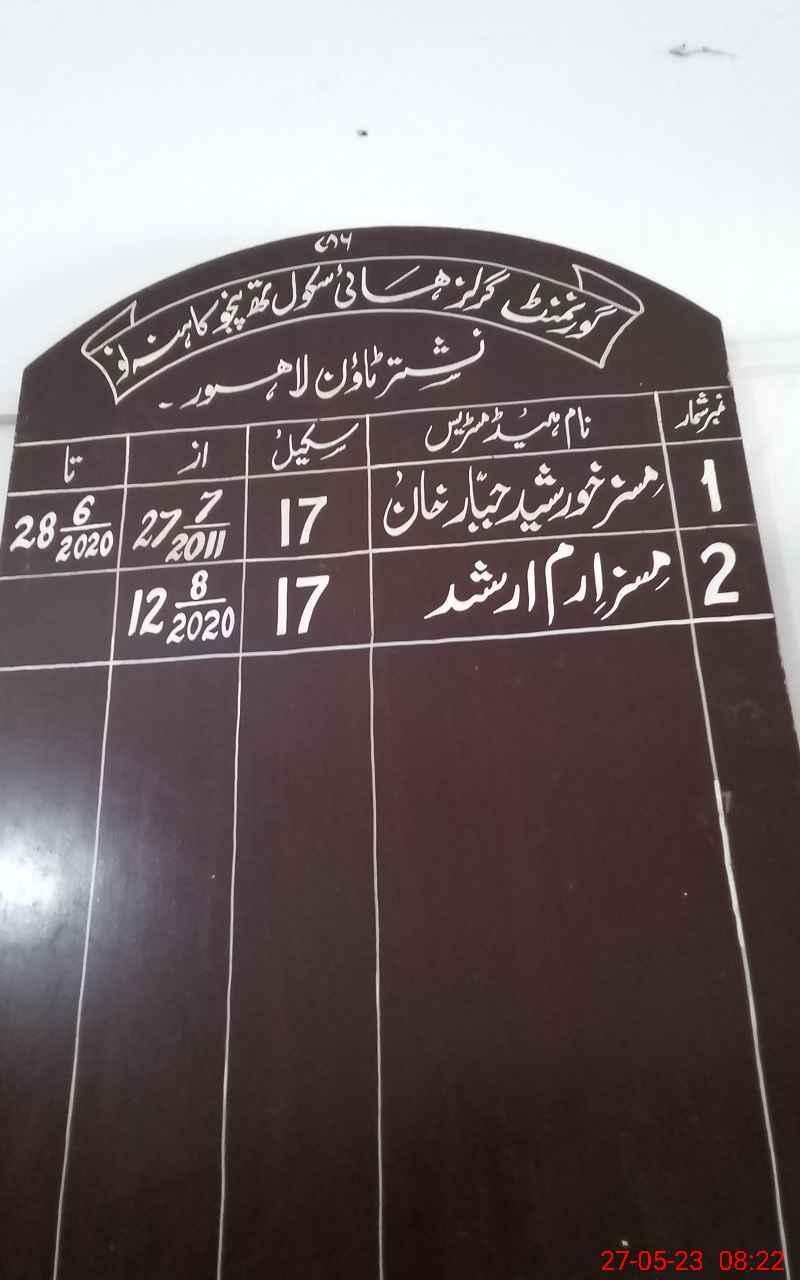 ۷۸۶
گورنمنٹ گرلز ہائی سکول تھہ پنجو کاہنہ نو
نشتر ٹاؤن لاہور۔
نمبر شمار نام ہیڈ مسٹریس سکیل از تا
1 مسز خورشید جبّار خان 17 27 7/2011 28 6/2020
2 مسز اِرم ارشد 17 12 8/2020
27-05-23 08:22